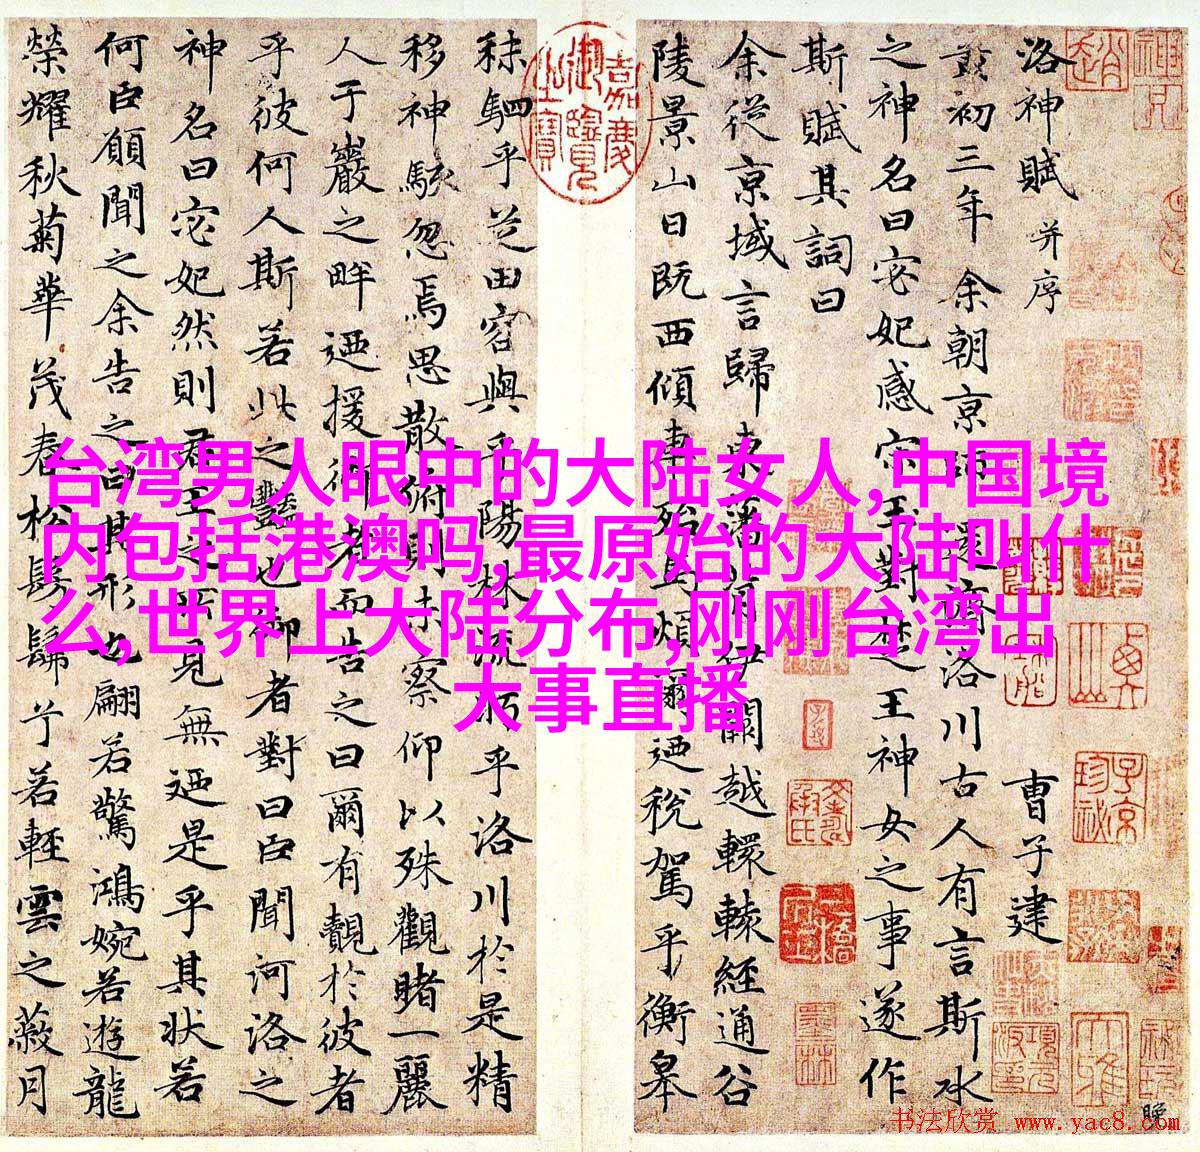 洛神賦 并序 曹子建
黃初三年余朝京師還濟洛川古人有言斯水
之神名曰宓妃感宋玉對楚王神女之事遂作
斯賦其詞曰
余從京域言歸東藩背伊闕越轘轅經通谷
陵景山日既西傾車殆馬煩爾迺稅駕乎衡皋
嘉慶御覽之寶
秣駟乎芝田容與乎陽林流眄乎洛川於是精
移神駭忽焉思散俯則未察仰以殊觀睹一麗
人于巖之畔迺援御者而告之曰爾有覿於彼者
乎彼何人斯若此之豔也御者對曰臣聞河洛之
神名曰宓妃然則君王之所見無迺是乎其状若
何臣願聞之余告之曰其形也翩若驚鴻婉若遊龍
榮耀秋菊華茂春松髣髴兮若輕雲之蔽月
台湾男人眼中的大陆女人,中国境
内包括港澳吗,最原始的大陆叫什
么,世界上大陆分布,刚刚台湾出
大事直播
书法欣赏 www.yac8.com